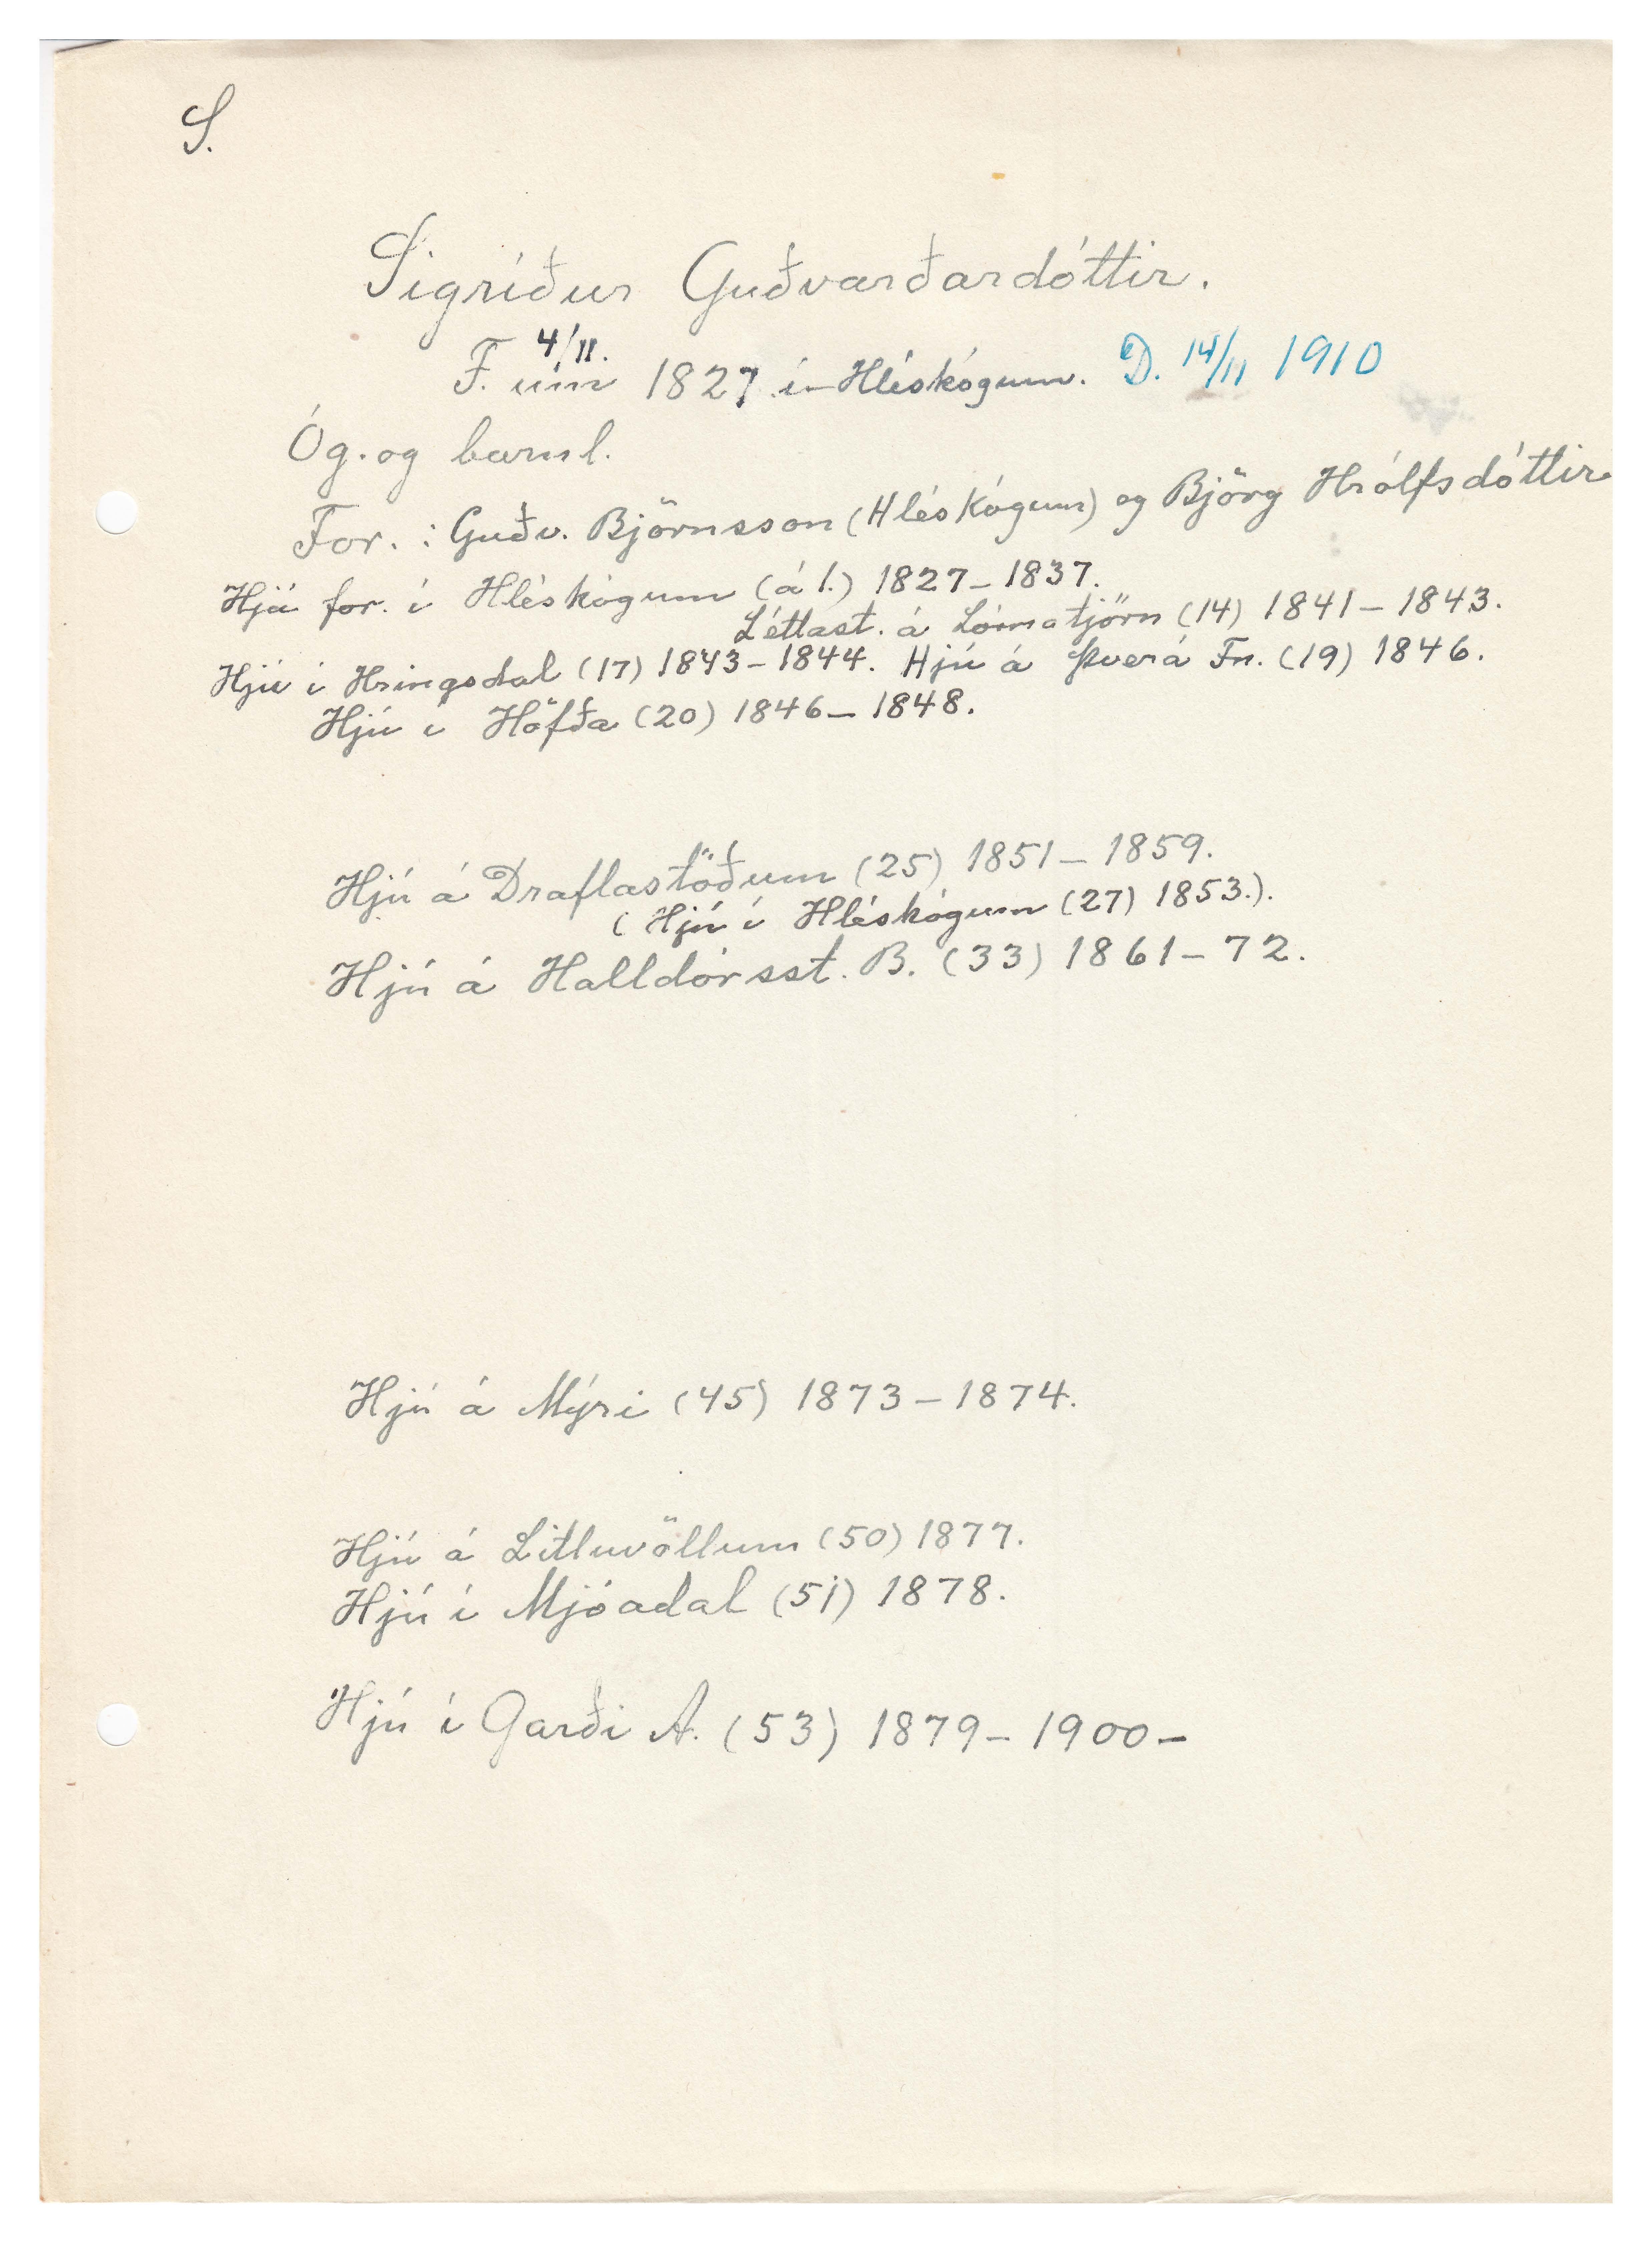 S.
Sigríður Guðvarðardóttir.
4/11.
F. um 1827 í Hléskógum. D. 14/11 1910
Óg. og barnl.
For. : Guðv. Björnsson (Hléskógum) og Björg Hrólfsdóttir
Hjá for. í Hléskógum (á 1.) 1827-1837.
Léttast. á Lómatjörn (14) 1841-1843.
Hjú í Hringsdal (17) 1843-1844. Hjú á Þverá Fn. (19) 1846.
Hjú í Höfða (20) 1846-1848.
Hjú á Draflastöðum (25) 1851-1859.
(Hjú í Hléskógum (27) 1853.).
Hjú á Halldórsst. B. (33) 1861-72.
Hjú á Mýri (45) 1873-1874.
Hjú á Litluvöllum (50) 1877.
Hjú í Mjóadal (51) 1878.
Hjú í Garði A. (53) 1879-1900-